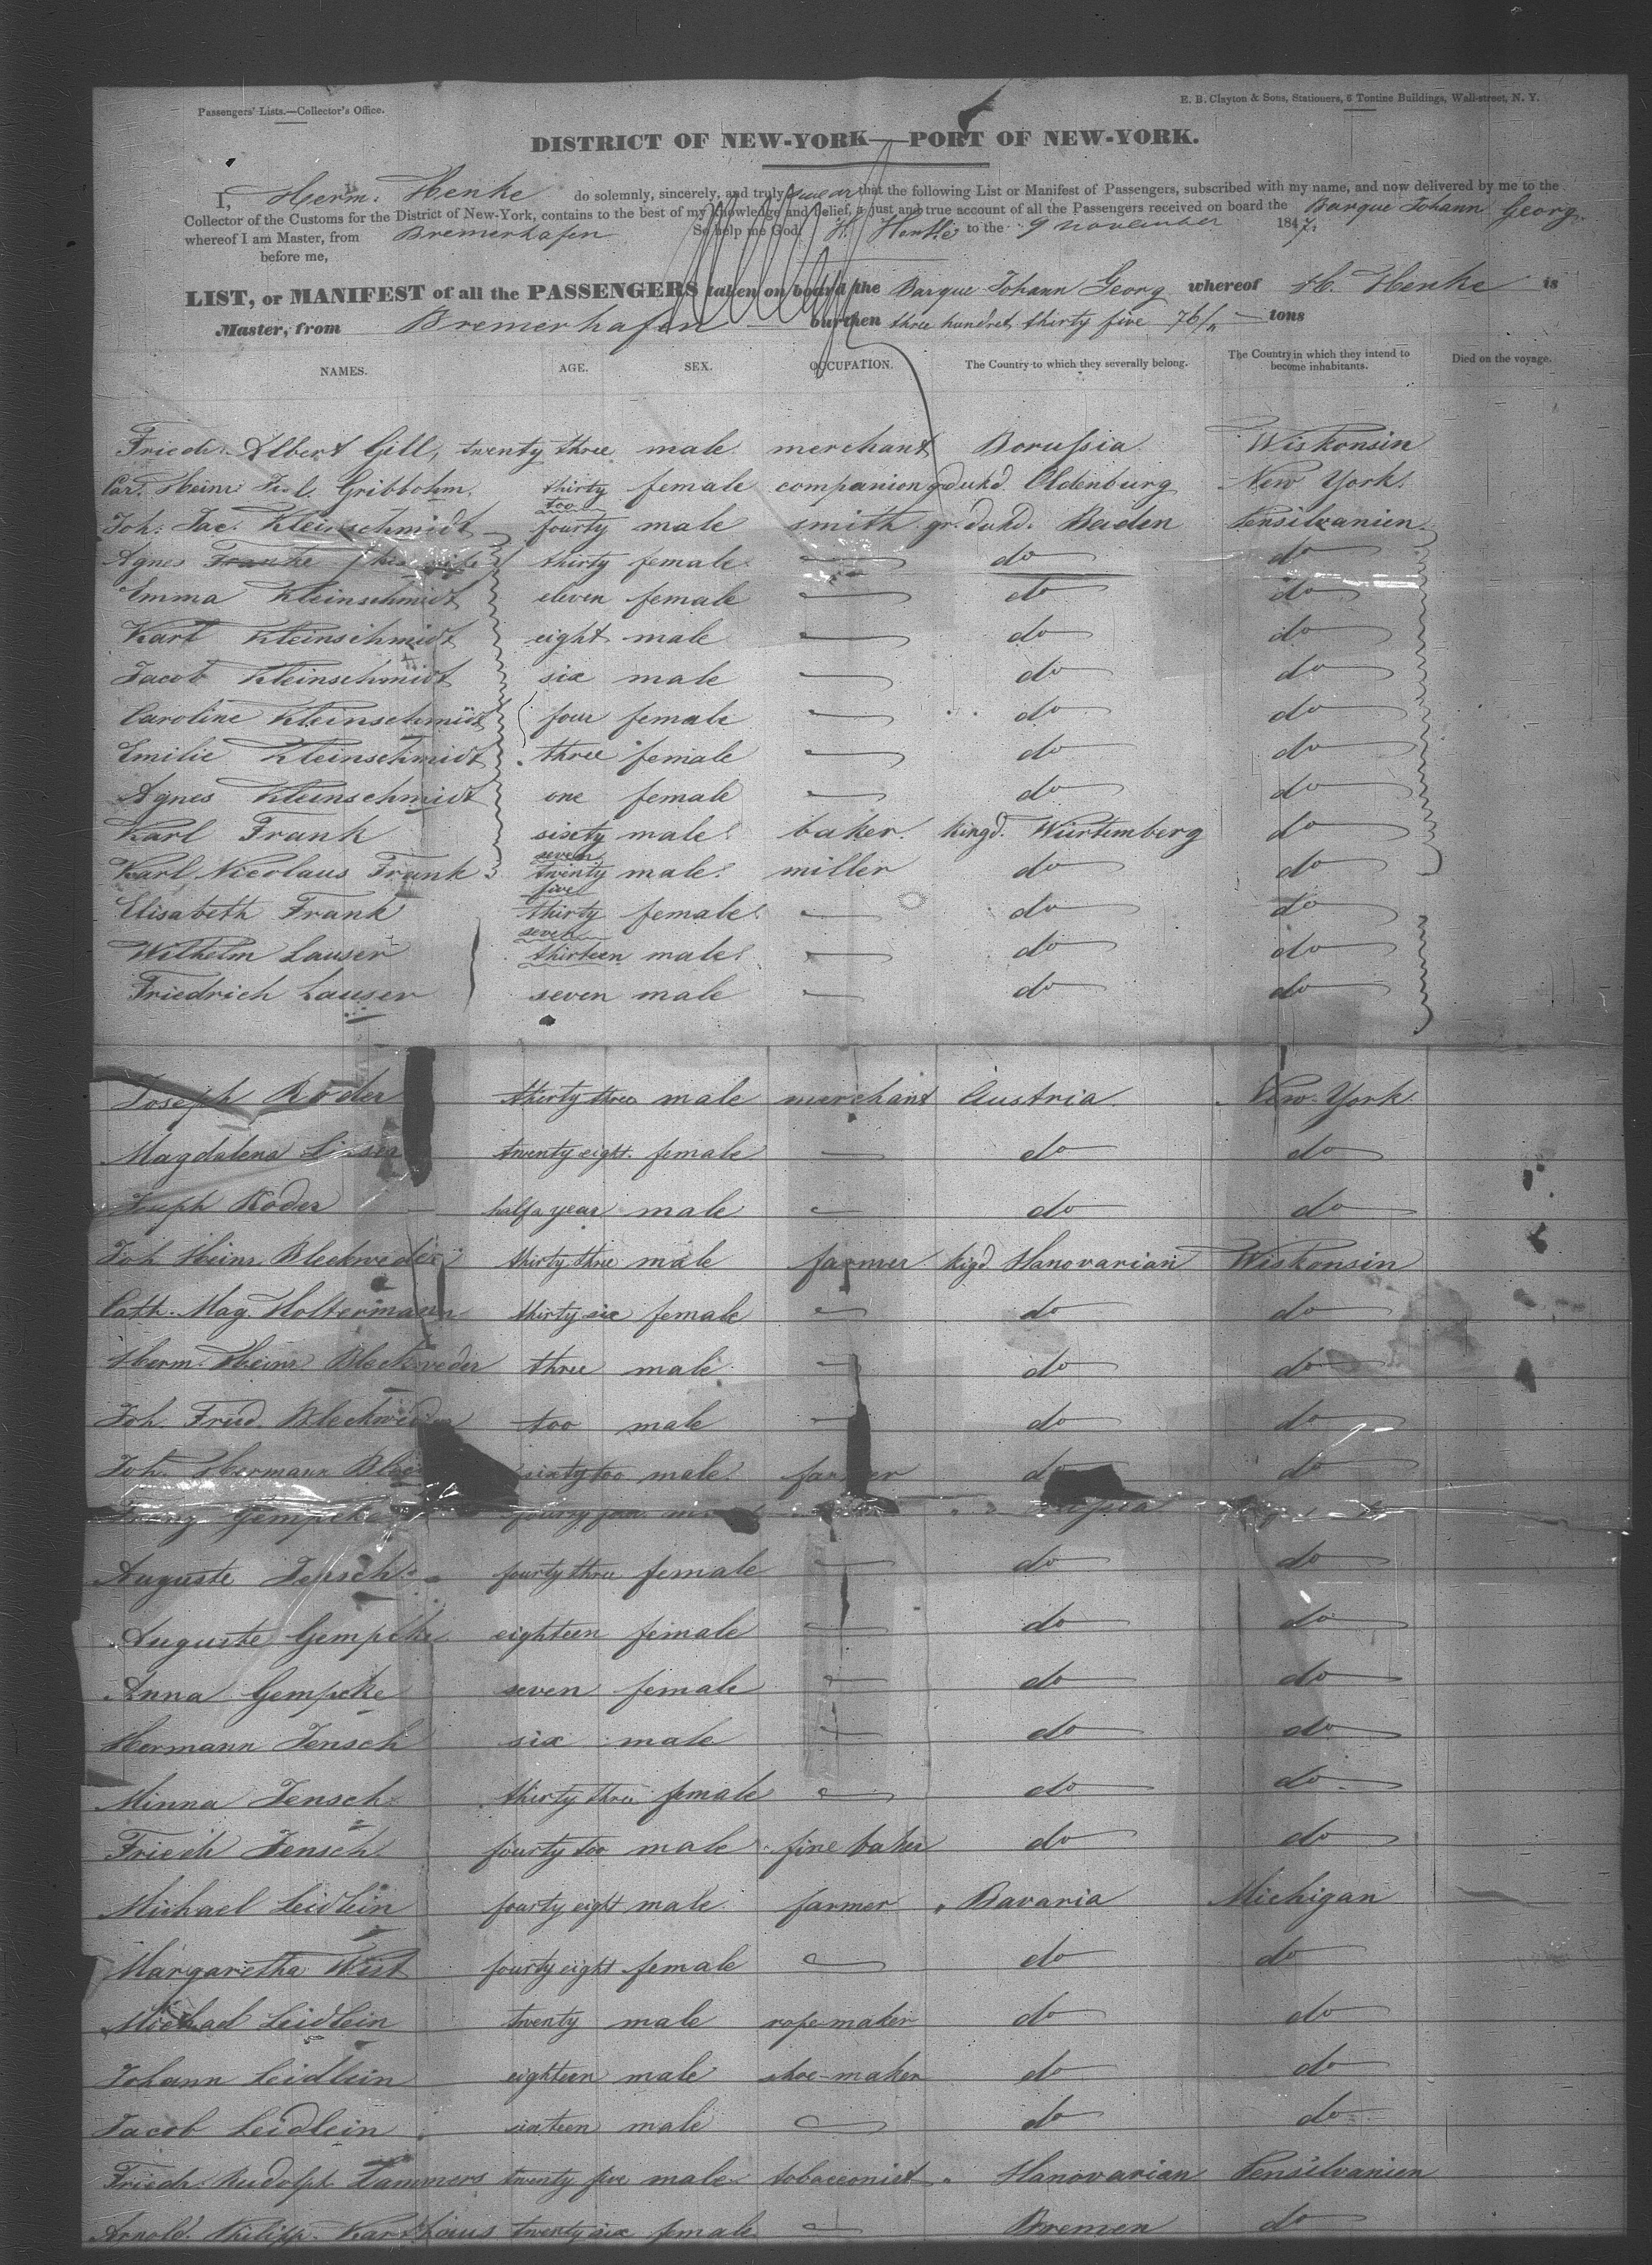 Passengers' Lists.—Collector's Office.
E. B. Clayton & Sons, Stationers, 6 Tontine Buildings, Wall-street, N. Y.
DISTRICT OF NEW-YORK—PORT OF NEW-YORK.
I, Herm. Henke do solemnly, sincerely, and truly swear that the following List or Manifest of Passengers, subscribed with my name, and now delivered by me to the
Collector of the Customs for the District of New-York, contains to the best of my knowledge and belief, a just and true account of all the Passengers received on board the Barque Johann Georg
whereof I am Master, from Bremerhafen So help me God. H. Henke to the 9 november 1847.
before me,
LIST, or MANIFEST of all the PASSENGERS taken on board the Barque Johann Georg whereof H. Henke is
Master, from Bremerhafen burthen three hundret thirty five 76/ tons
NAMES. AGE. SEX. OCCUPATION. The Country to which they severally belong. The Country in which they intend to become inhabitants. Died on the voyage.
Friedr. Albert Gill, twenty three male merchant Borussia Wiskonsin
Heinr. Gribbohm. thirty too female companion grdukd. Oldenburg New York.
Joh. Jac. Kleinschmidt fourty male smith gr. dukd. Baden Pensilvanien
Agnes Franke thirty female do do
Emma Kleinschmidt eleven female do do
Karl Kleinschmidt eight male do do
Jacob Kleinschmidt six male do do
Caroline Kleinschmidt four female do do
Emilie Kleinschmidt three female do do
Agnes Kleinschmidt one female do do
Karl Frank sixty seven male baker. kingd. Würtemberg do
Karl Nicolaus Frank twenty five male miller do do
Elisabeth Frank thirty seven female do do
Wilhelm Lauser thirteen male do do
Friedrich Lauser seven male do do
Joseph Roder thirty three male merchant Austria New York
Magdalena twenty eight female do do
Joseph Roder half a year male do do
Joh Heinr. Bleckweder thirty three male farmer kigd Hanovarian Wiskonsin
Cath. Mag. Holtermann thirty six female do do
Herm. Heinr Bleckweder three male do do
Joh. Fried. Bleckweder too male do do
Joh. Hermann sixty too male farmer do do
Gempcke fourty
Auguste Jensch fourty three female do do
Auguste Gempcke eighteen female do do
Anna Gempcke seven female do do
Hermann Jensch six male do do
Minna Jensch thirty three female do do
Friedr Jensch fourty too male fine baker do do
Michael Leidlein fourty eight male farmer Bavaria Michigan
Margaretha Wist fourty eight female do do
Michael Leidlein twenty male rope-maker do do
Johann Leidlein eighteen male shoe-maker do do
Jacob Leidlein sixteen male do do
Friedr. Rudolph Lammers twenty five male tobacconist Hanovarian Pensilvanien
Arnold. Philipp. Karsthaus twenty six female Bremen do